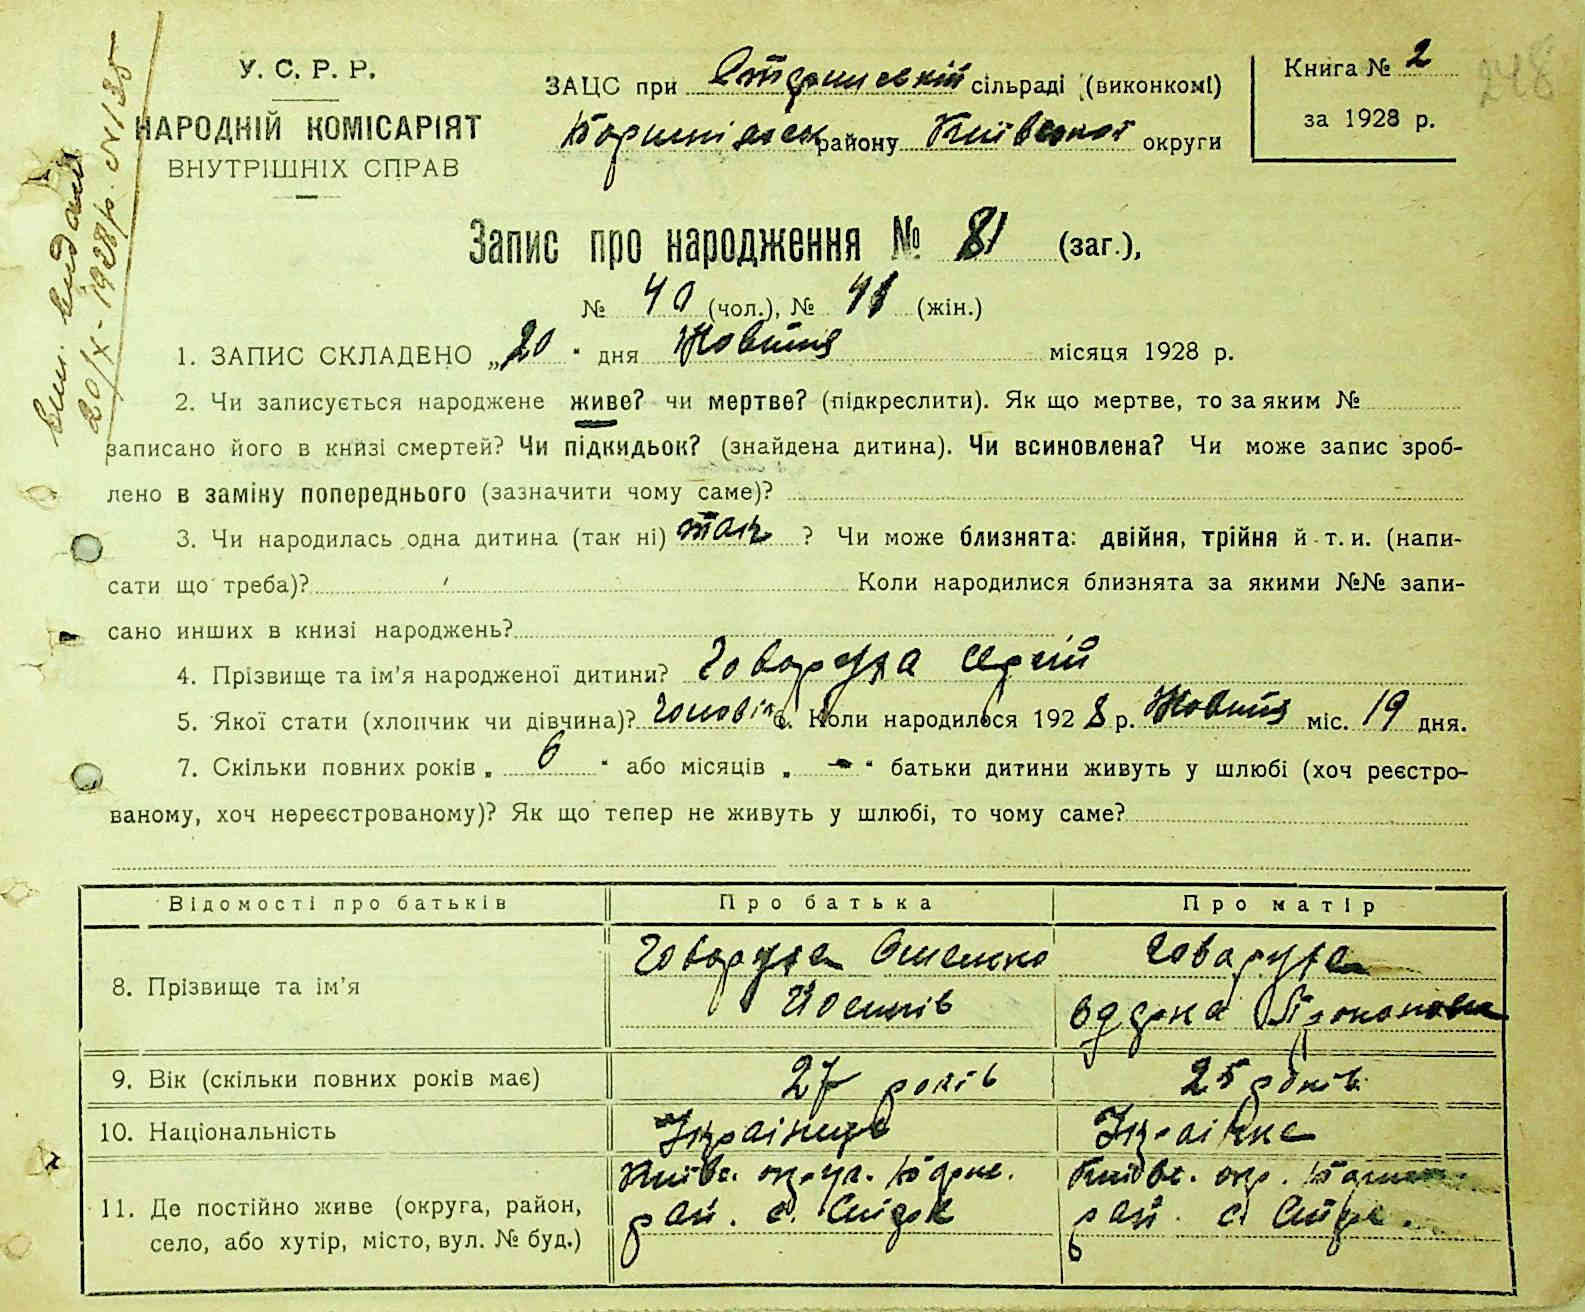 У. С. Р. Р.
НАРОДНІЙ КОМІСАРІЯТ
ВНУТРІШНІХ СПРАВ
ЗАЦС при сільраді (виконкомі)
району Київської округи
Книга № 2
за 1928 р.
248
Вип. видана
20/X - 1928 р. № 135
Запис про народження № 81 (заг.),
№ 40 (чол.), № 41 (жін.)
1. ЗАПИС СКЛАДЕНО „20“ дня Жовтня місяця 1928 р.
2. Чи записується народжене живе? чи мертве? (підкреслити). Як що мертве, то за яким №
записано його в книзі смертей? Чи підкидьок? (знайдена дитина). Чи всиновлена? Чи може запис зроб-
лено в заміну попереднього (зазначити чому саме)?
3. Чи народилась одна дитина (так ні) так ? Чи може близнята: двійня, трійня й т. и. (напи-
сати що треба)? Коли народилися близнята за якими №№ запи-
сано инших в книзі народжень?
4. Прізвище та ім'я народженої дитини? Говоруха Сергій
5. Якої стати (хлопчик чи дівчина)? чоловік 6. Коли народилося 1928 р. Жовтня міс. 19 дня.
7. Скільки повних років „ 6 “ або місяців „ - “ батьки дитини живуть у шлюбі (хоч реєстро-
ваному, хоч нереєстрованому)? Як що тепер не живуть у шлюбі, то чому саме?
Відомості про батьків Про батька Про матір
8. Прізвище та ім'я Говоруха Омелько Говоруха
Йосипів Одарка
9. Вік (скільки повних років має) 27 років 25 років
10. Національність Українець Українка
11. Де постійно живе (округа, район,
село, або хутір, місто, вул. № буд.)
Київс. округ.
рай. с.
Київс. окр.
рай. с.